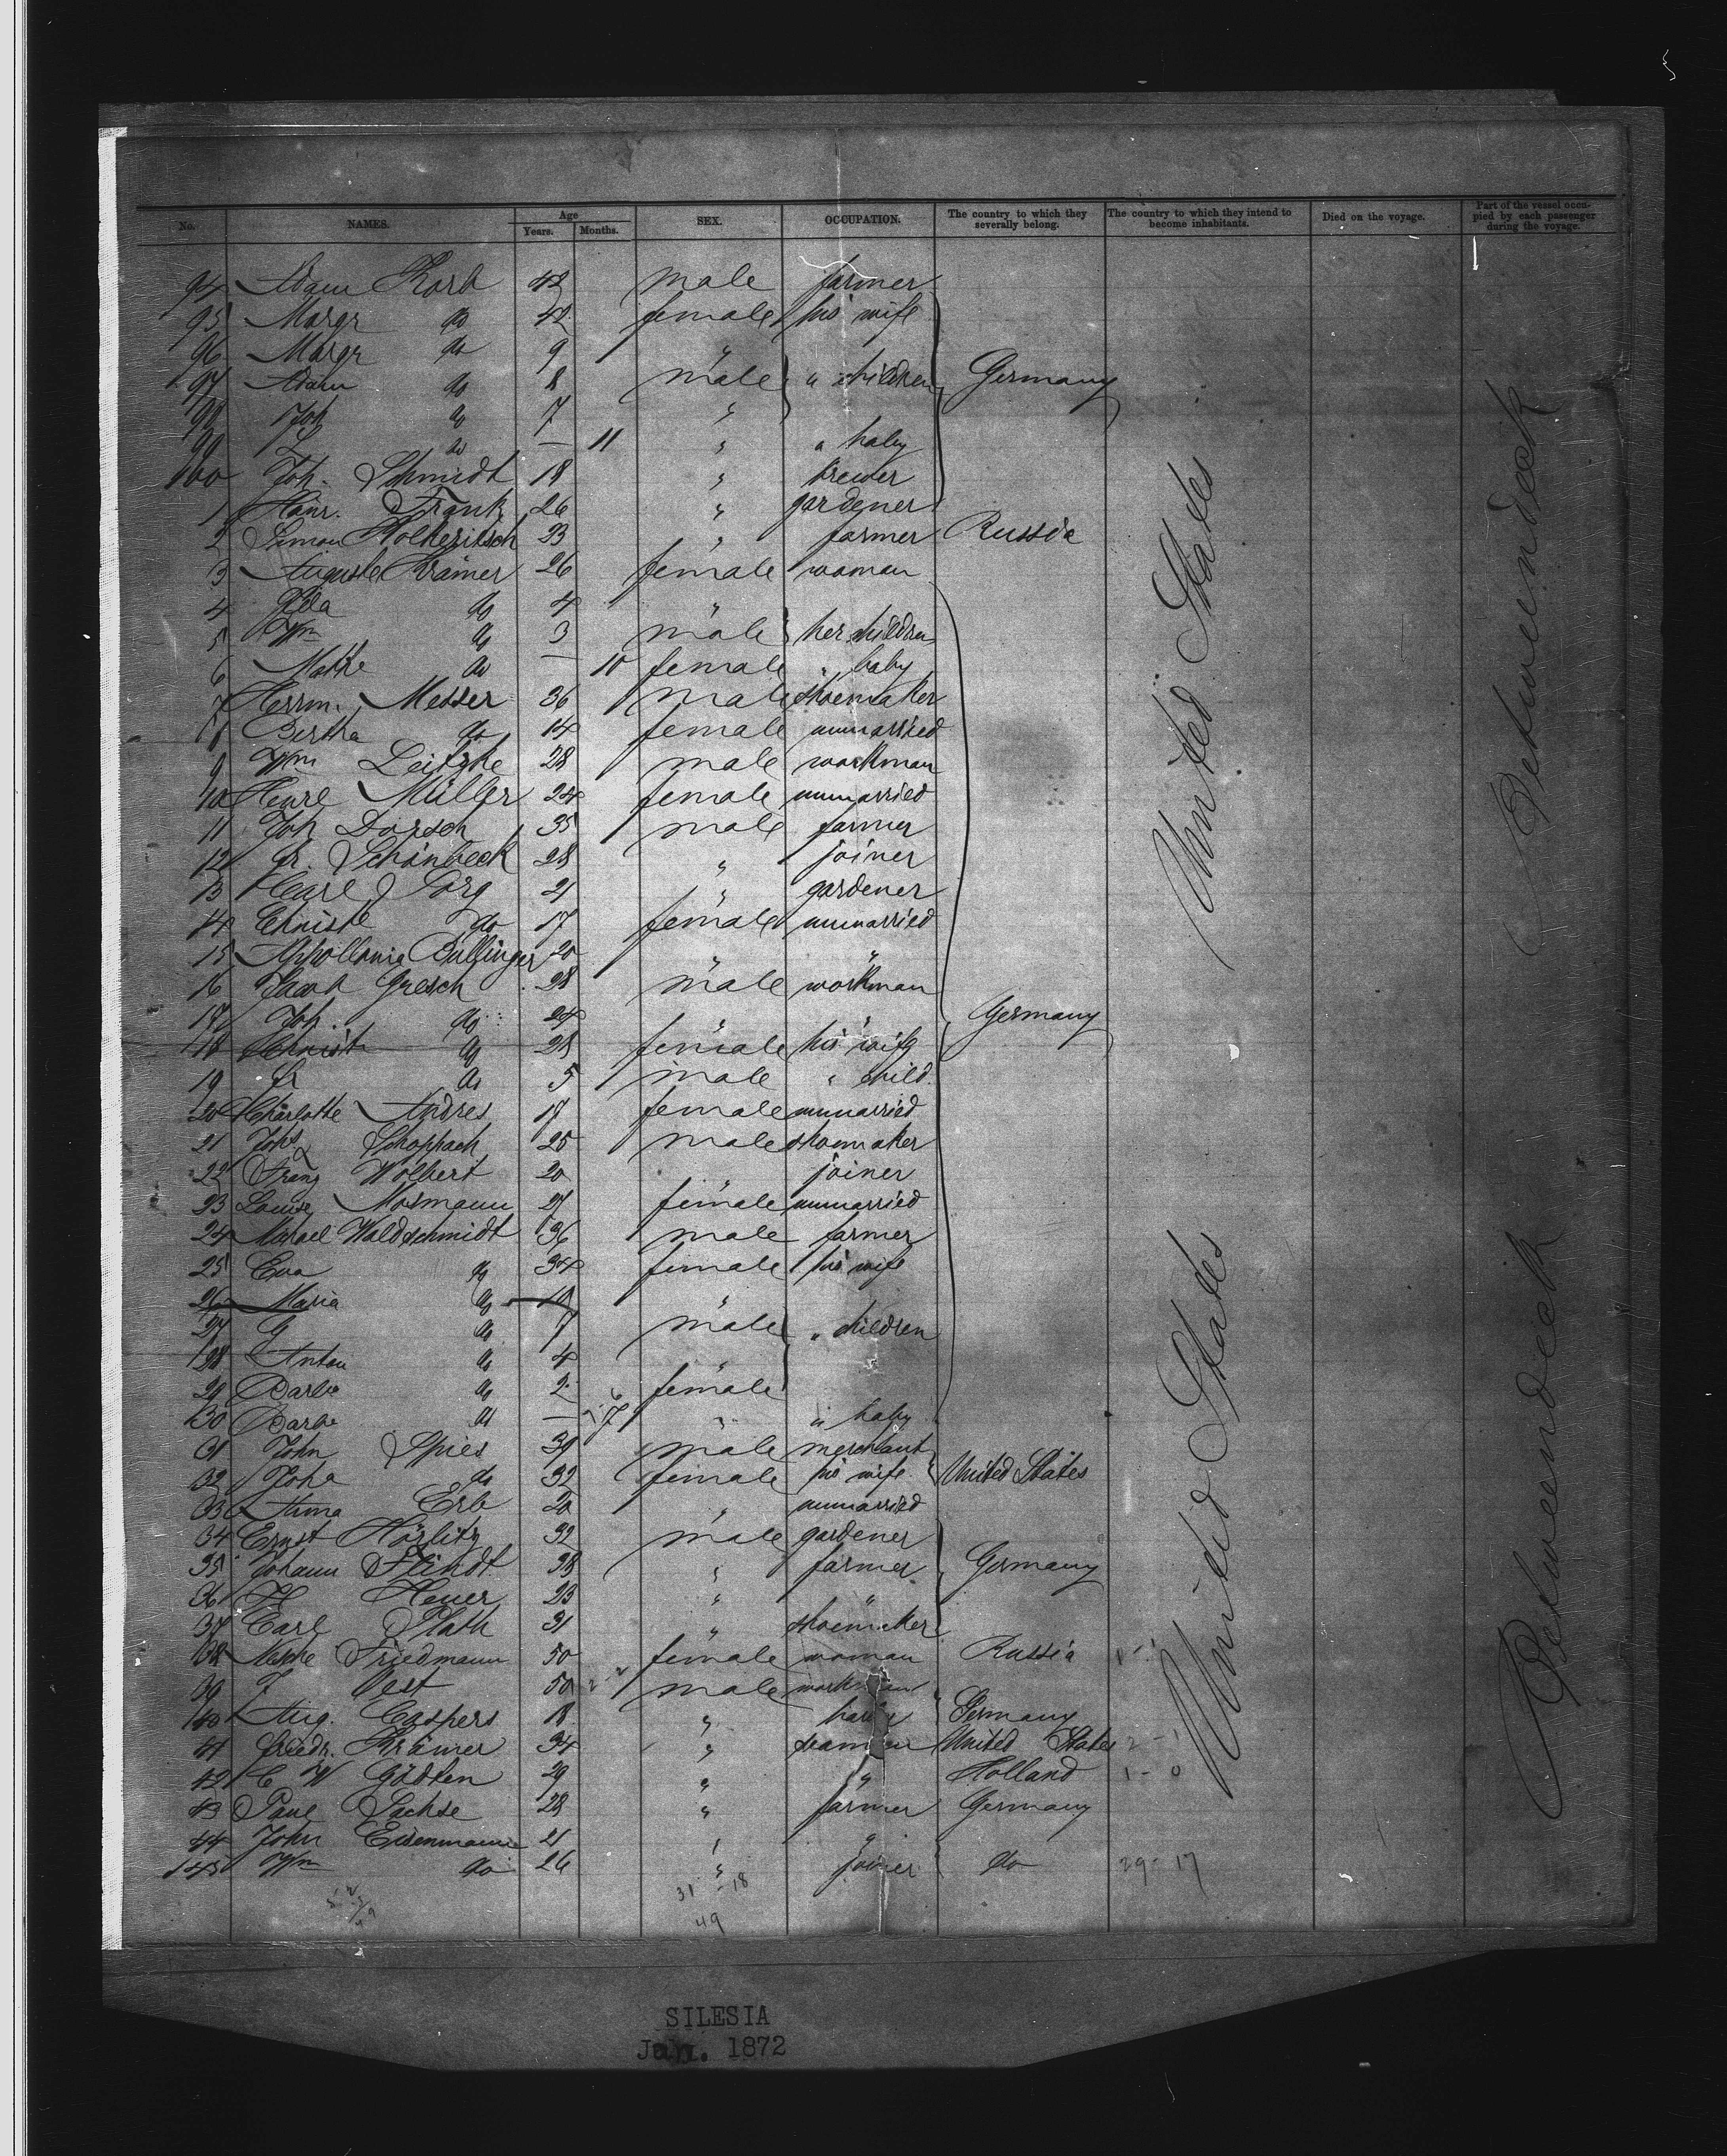 No. NAMES. Age Years. Months. SEX. OCCUPATION. The country to which they severally belong. The country to which they intend to become inhabitants. Died on the voyage. Part of the vessel occupied by each passenger during the voyage.
94 Adam Korb 42 male farmer
95 Margr do 42 female his wife
96 Margr do 9 "
97 Adam do 8 male " children Germany
98 Joh do 7 "
99 do — 11 " " baby
100 Joh. Schmidt 18 " brewer
1 Heinr. Frank 26 " gardener
2 Simon 23 " farmer Russia
3 Auguste Krämer 26 female woman
4 Ida do 4 "
5 Wm do 3 male her children
6 do — 10 female " baby
7 Herrm. Messer 36 male shoemaker
8 Bertha do 14 female unmarried
9 Wm Leitzke 28 male workman
10 Müller 24 female unmarried
11 Joh Dorsch 35 male farmer
12 Fr. Schönbeck 28 " joiner
13 Carl Sorg 21 " gardener
14 Christe do 17 female unmarried
15 Appollonia Bulfinger 20 " "
16 Jacob Gresch 28 male workman
17 Joh. do 24 " " Germany
18 Christ do 28 female his wife
19 Fr do 5 male " child
20 Charlotte Andres 17 female unmarried
21 Johs Schoppach 25 male shoemaker
22 Franz Wolbert 20 " joiner
23 Louise Mosmann 21 female unmarried
24 Waldschmidt 36 male farmer
25 Eva do 34 female his wife
26 Maria do 10 "
27 G do 7 male " children
28 Anton do 4 "
29 Barbe do 2 female
30 Barbe do — 7 " " baby
31 John Spies 39 male merchant
32 Joha do 32 female his wife United States
33 Anna Erb 20 " unmarried
34 Ernst Hörlitz 32 male gardener
35 Johann Flindt 38 " farmer Germany
36 H Heuer 23 " "
37 Carl Plath 31 " shoemaker
38 Friedmann 50 female woman Russia
39 Oest 50 male workman
40 Aug. Caspers 18 " Germany
41 Friedr. Krämer 34 " seaman United States
42 C W Gödken 29 " " Holland 1 - 0
43 Paul Sachse 28 " farmer Germany
44 John Eisenmann 21 " "
145 Wm do 26 " joiner do 29 - 17
31 - 18
49
United States
United States
Betweendeck
Betweendeck
SILESIA
Jan. 1872